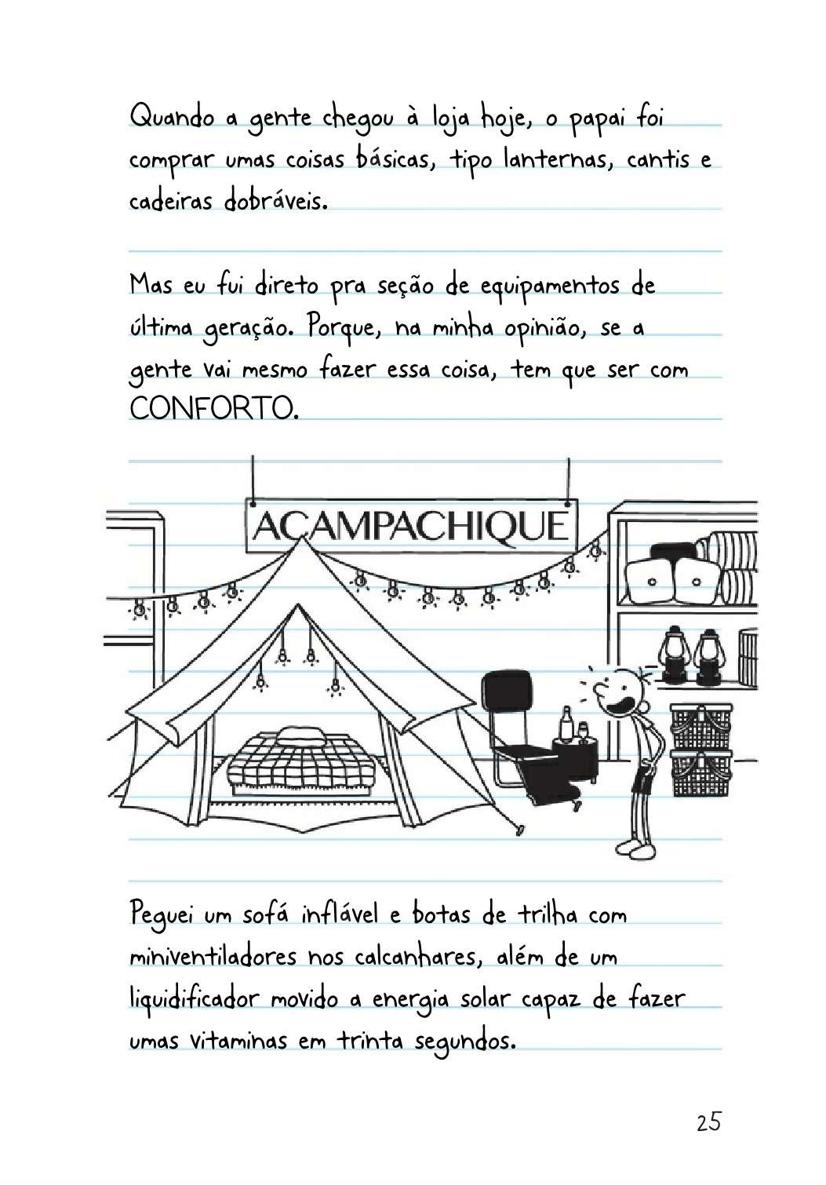 Quando a gente chegou à loja hoje, o papai foi
comprar umas coisas básicas, tipo lanternas, cantis e
cadeiras dobráveis.
Mas eu fui direto pra seção de equipamentos de
última geração. Porque, na minha opinião, se a
gente vai mesmo fazer essa coisa, tem que ser com
CONFORTO.
ACAMPACHIQUE
Peguei um sofá inflável e botas de trilha com
miniventiladores nos calcanhares, além de um
liquidificador movido a energia solar capaz de fazer
umas vitaminas em trinta segundos.
25